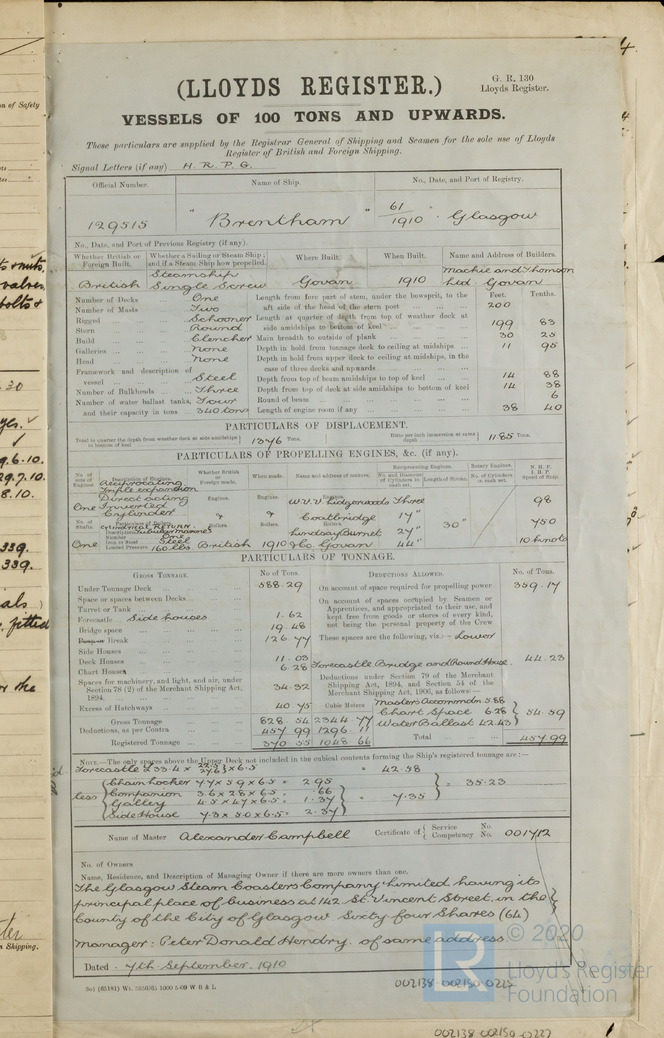 (LLOYDS REGISTER.)
G. R. 130
Lloyds Register.
VESSELS OF 100 TONS AND UPWARDS.
These particulars are supplied by the Registrar General of Shipping and Seamen for the sole use of Lloyds
Register of British and Foreign Shipping.
Signal Letters (if any) H. R. P. G.
Official Number. Name of Ship. No., Date, and Port of Registry.
129515 "Brentham" 61/1910 Glasgow
No., Date, and Port of Previous Registry (if any).
Whether British or Foreign Built. Whether a Sailing or Steam Ship; and if a Steam Ship how propelled. Where Built. When Built. Name and Address of Builders.
British Steamship Single Screw Govan 1910 Mackie and Thomson Ltd Govan
Number of Decks One
Number of Masts Two
Rigged Schooner
Stern Round
Build Clencher
Galleries None
Head None
Framework and description of vessel Steel
Number of Bulkheads Three
Number of water ballast tanks, and their capacity in tons Four 340 tons
Feet. Tenths.
Length from fore part of stem, under the bowsprit, to the aft side of the head of the stern post 200
Length at quarter of depth from top of weather deck at side amidships to bottom of keel 199 83
Main breadth to outside of plank 30 25
Depth in hold from tonnage deck to ceiling at midships 11 95
Depth in hold from upper deck to ceiling at midships, in the case of three decks and upwards
Depth from top of beam amidships to top of keel 14 88
Depth from top of deck at side amidships to bottom of keel 14 38
Round of beam 6
Length of engine room if any 38 40
PARTICULARS OF DISPLACEMENT.
Total to quarter the depth from weather deck at side amidships to bottom of keel 1376 Tons. Ditto per inch immersion at same depth 11.85 Tons.
PARTICULARS OF PROPELLING ENGINES, &c. (if any).
No. of sets of Engines. Description of Engines. Whether British or Foreign made. When made. Name and address of makers. Reciprocating Engines. Rotary Engines. N. H. P. I. H. P. Speed of Ship.
No. and Diameter of Cylinders in each set. Length of Stroke. No. of Cylinders in each set.
One Reciprocating Triple expansion Direct acting Inverted Cylinder
Engines. Engines. Engines.
W. V. V. Lidgerwoods Coatbridge
Three 17" 27" 44" 30"
98
750
10 knots
No. of Shafts. Particulars of Boilers. Boilers. Boilers. Boilers.
Description Cylindrical Return Tubular Marine
Number One
Iron or Steel Steel
Loaded Pressure 160 lbs.
One British & 1910 Lindsay Burnet & Co. Govan
PARTICULARS OF TONNAGE.
GROSS TONNAGE. No. of Tons.
Under Tonnage Deck 588.29
Space or spaces between Decks
Turret or Tank
Forecastle Side houses 1.62
Bridge space 19.48
Break 126.77
Side Houses
Deck Houses 11.03
Chart House 6.28
Spaces for machinery, and light, and air, under Section 78 (2) of the Merchant Shipping Act, 1894 34.32
Excess of Hatchways 40.75
Cubic Meters
Gross Tonnage 828.54 2344.77
Deductions, as per Contra 457.99 1296.11
Registered Tonnage 370.55 1048.66
DEDUCTIONS ALLOWED. No. of Tons.
On account of space required for propelling power 359.17
On account of spaces occupied by Seamen or Apprentices, and appropriated to their use, and kept free from goods or stores of every kind, not being the personal property of the Crew
These spaces are the following, viz.:- Lower Forecastle Bridge and Round House. 44.23
Deductions under Section 79 of the Merchant Shipping Act, 1894, and Section 54 of the Merchant Shipping Act, 1906, as follows:-
Masters Accommdn 5.88
Chart Space 6.28
Water Ballast 42.43 } 54.59
Total 457.99
NOTE.—The only spaces above the Upper Deck not included in the cubical contents forming the Ship's registered tonnage are:—
Forecastle 33.4 × } × 6.5 = 42.58
less { Chain locker 7.7 × 5.9 × 6.5 = 2.95
Companion 3.6 × 2.8 × 6.5 = .66
Galley 4.5 × 4.7 × 6.5 = 1.37
Side House 7.3 × 5.0 × 6.5 = 2.37 } = 7.35 } = 35.23
Name of Master Alexander Campbell Certificate of { Service No. Competency No. 001712
No. of Owners
Name, Residence, and Description of Managing Owner if there are more owners than one.
The Glasgow Steam Coasters Company Limited having its
principal place of business at 142 St. Vincent Street, in the
County of the City of Glasgow Sixty four Shares (64)
Manager: Peter Donald Hendry. of same address
Dated 7th September. 1910
© 2020
Lloyd's Register
Foundation
LR
002138-002150-0227
002138-002150-0227
of Safety
nuts,
valves
bolts &
.30
9.6.10.
29.7.10.
8.10.
339.
339.
fitted
or the
Shipping.